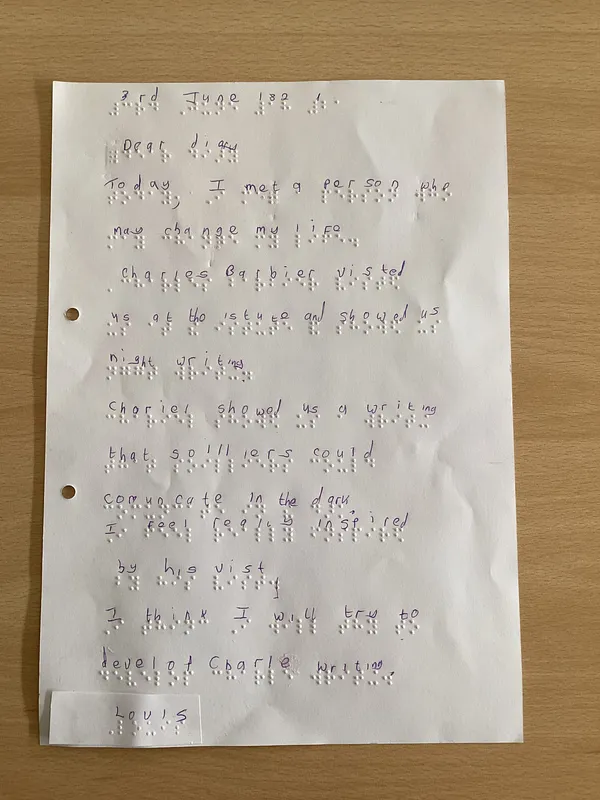 3rd June 1821.
Dear diary
Today, I met a person who
may change my life,
Charles Barbier visted
us at the istute and showed us
night writing.
Charlel showed us a writing
that sollliers could
comuncate in the dark
I feel really inspired
by his vist,
I think I will try to
develof Charle writing.
Louis